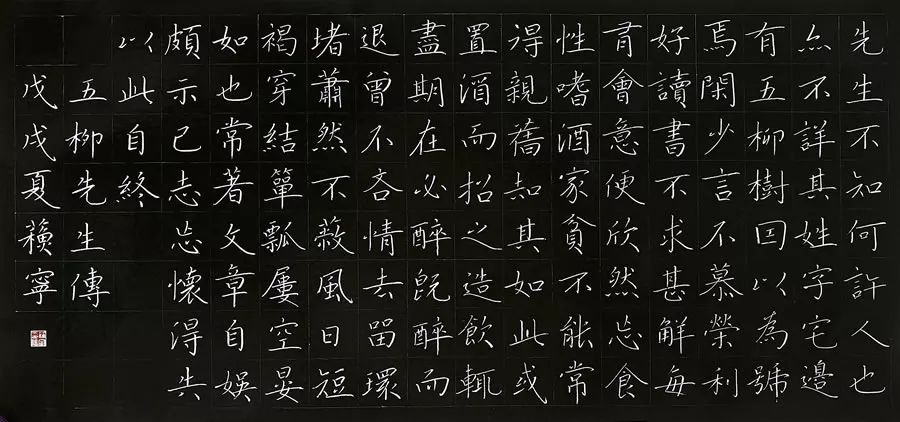 先生不知何許人也
亦不詳其姓字宅邊
有五柳樹囙以為號
焉閑少言不慕榮利
好讀書不求甚解每
有會意便欣然忘食
性嗜酒家貧不能常
得親舊知其如此或
置酒而招之造飲輒
盡期在必醉既醉而
退曾不吝情去留環
堵蕭然不蔽風日短
褐穿結簞瓢屢空晏
如也常著文章自娛
頗示己志忘懷得失
以此自終
五柳先生傳
戊戌夏賴寧